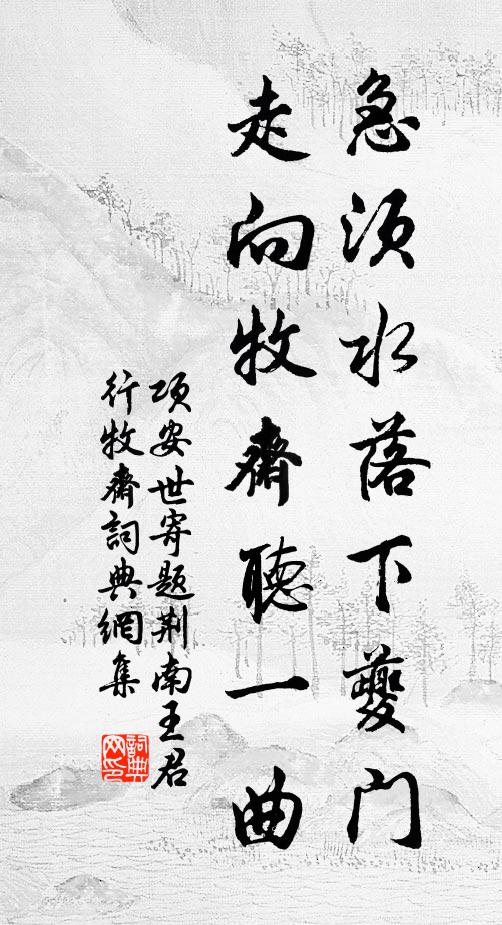 急須水落下夔門
走向牧齋聽一曲
項安世寄題荆南王君
行牧齋詞典網集
詞典
网印